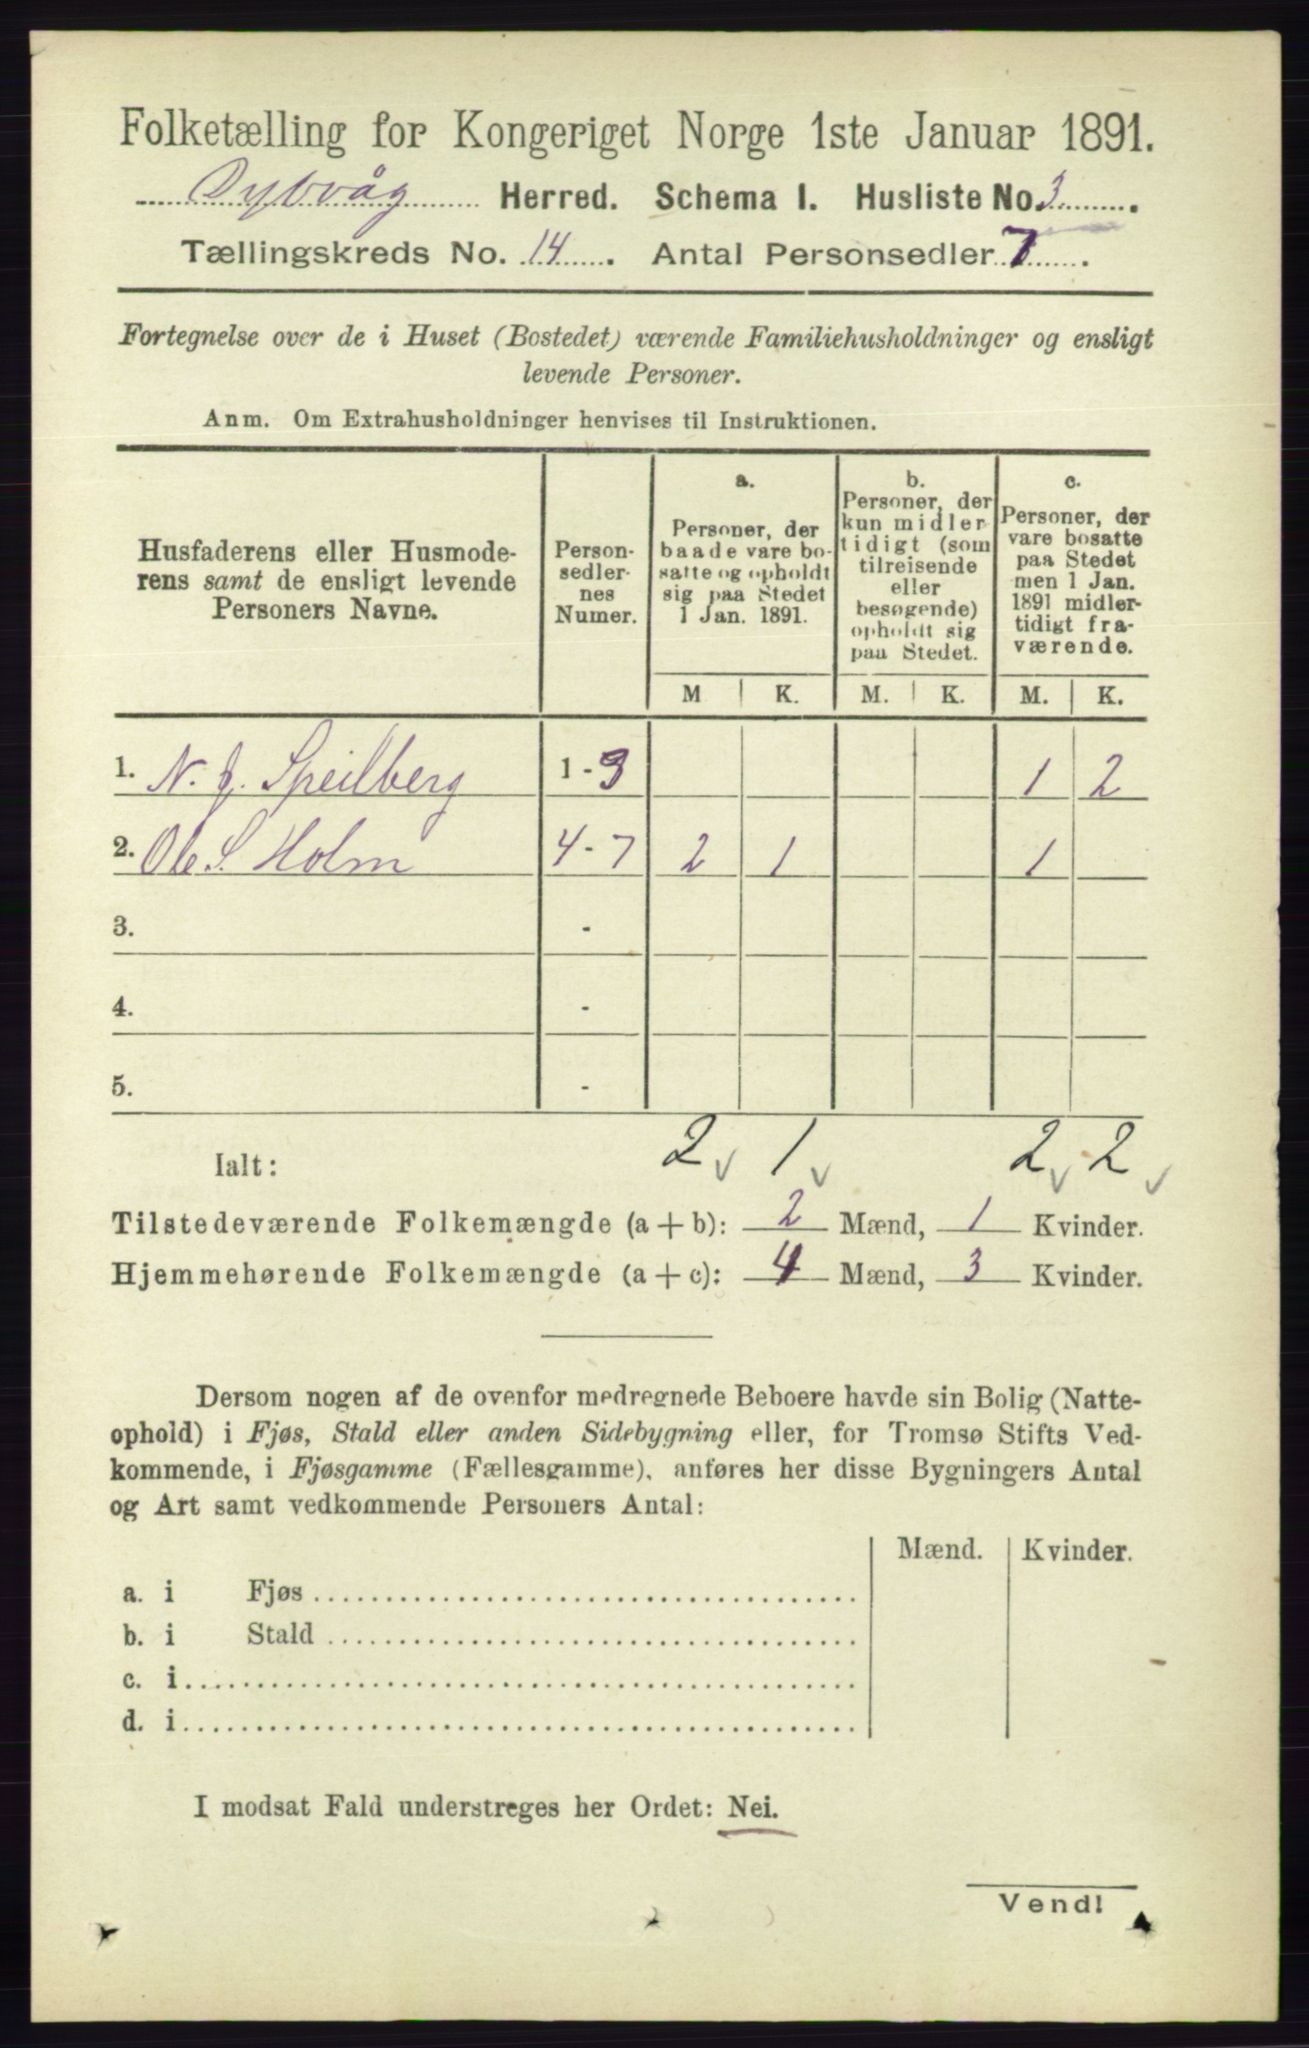 Folketælling for Kongeriget Norge 1ste Januar 1891.
Dybvåg Herred. Schema I. Husliste No. 3.
Tællingskreds No. 14. Antal Personsedler 7.
Fortegnelse over de i Huset (Bostedet) værende Familiehusholdninger og ensligt
levende Personer.
Anm. Om Extrahusholdninger henvises til Instruktionen.
Husfaderens eller Husmode-
rens samt de ensligt levende
Personers Navne.
Person-
sedler-
nes
Numer.
a.
Personer, der
baade vare bo-
satte og opholdt
sig paa Stedet
1 Jan. 1891.
b.
Personer, der
kun midler
tidigt (som
tilreisende
eller
besøgende)
opholdt sig
paa Stedet.
c.
Personer, der
vare bosatte
paa Stedet
men 1 Jan.
1891 midler-
tidigt fra-
værende.
M K. M. K. M. K.
1. N. J. Speilberg 1-3 1 2
2. Ole S. Holm 4-7 2 1 1
3. -
4. -
5. -
Ialt: 2 1 2 2
Tilstedeværende Folkemængde (a + b): 2 Mænd, 1 Kvinder.
Hjemmehørende Folkemængde (a + c): 4 Mænd, 3 Kvinder.
Dersom nogen af de ovenfor medregnede Beboere havde sin Bolig (Natte-
ophold) i Fjøs, Stald eller anden Sidebygning eller, for Tromsø Stifts Ved-
kommende, i Fjøsgamme (Fællesgamme), anføres her disse Bygningers Antal
og Art samt vedkommende Personers Antal:
Mænd. Kvinder.
a. i Fjøs
b. i Stald
c. i
d. i
I modsat Fald understreges her Ordet: Nei.
Vend!